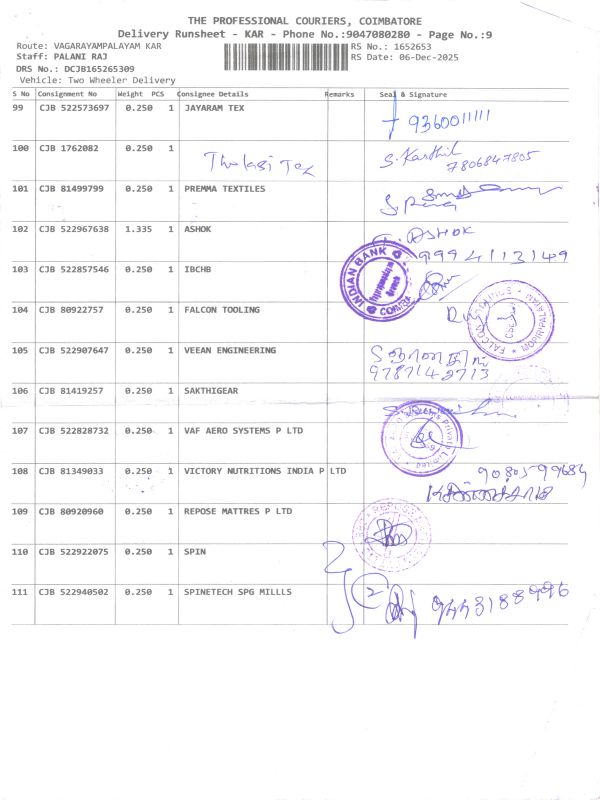 THE PROFESSIONAL COURIERS, COIMBATORE
Delivery Runsheet - KAR - Phone No.:9047080280 - Page No.:9
Route: VAGARAYAMPALAYAM KAR
RS No.: 1652653
Staff: PALANI RAJ
RS Date: 06-Dec-2025
DRS No.: DCJB165265309
Vehicle: Two Wheeler Delivery
S No Consignment No Weight PCS Consignee Details Remarks Seal & Signature
99 CJB 522573697 0.250 1 JAYARAM TEX
9360011111
100 CJB 1762082 0.250 1
Thulasi Tex
S. Karthik
7806847805
101 CJB 81499799 0.250 1 PREMMA TEXTILES
102 CJB 522967638 1.335 1 ASHOK
ASHOK
9994113149
103 CJB 522857546 0.250 1 IBCHB
INDIAN BANK
104 CJB 80922757 1 0.250 1 FALCON TOOLING
FALCON
MOPIRIPALAYAM
105 CJB 522907647 0.250 1 VEEAN ENGINEERING
9787142713
106 CJB 81419257 0.250 1 SAKTHIGEAR
107 CJB 522828732 0.250 1 VAF AERO SYSTEMS P LTD
Private Limited
108 CJB 81349033 0.250 1 VICTORY NUTRITIONS INDIA P LTD
9080599684
109 CJB 80920960 0.250 1 REPOSE MATTRES P LTD
110 CJB 522922075 0.250 1 SPIN
111 CJB 522940502 0.250 1 SPINETECH SPG MILLLS
2
9443188996